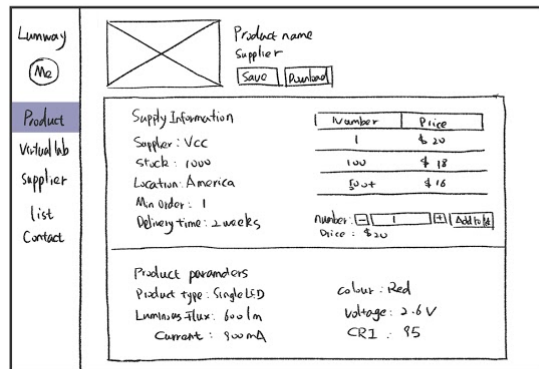 Lumway
Me
Product
Virtual lab
Supplier
list
Contact
Product name
Supplier
Save
Download
Supply Information
Supplier: Vcc
Stock: 1000
Location: America
Min order: 1
Delivery time: 2 weeks
Number Price
1 $20
100 $18
500+ $16
number: - 1 + Add to
Price: $20
Product paramders
Product type: Single LED
Luminous Flux: 600 lm
Current: 900mA
colour: Red
voltage: 2.6V
CRI: 95